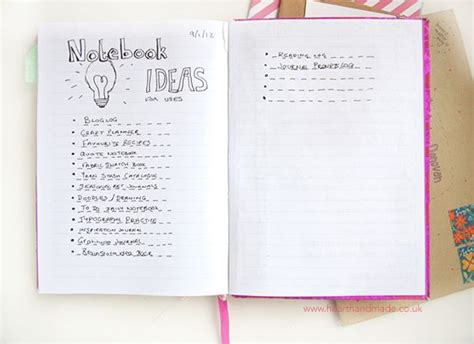 9/1/12
Notebook
IDEAS
FOR USES
BLOGLOG
CRAFT PLANNER
FAVOURITE RECIPES
QUOTE NOTEBOOK
FABRIC SWATCH BOOK
YARN STASH CATALOGUE
SEASONAL ART JOURNALS
DOODLES / DRAWING
TO DO DAILY NOTEBOOK
TYPOGRAPHY PRACTICE
INSPIRATION JOURNAL
GRATITUDE JOURNAL
BRAINSTORMING BOOK
READING LOG
JOURNAL PROMPT LOG
www.hearthandmade.co.uk